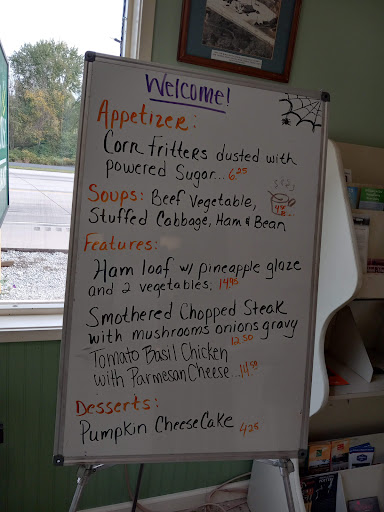 Welcome!
Appetizer:
Corn fritters dusted with
powered Sugar... 6.25
Soups: Beef Vegetable,
Stuffed Cabbage, Ham & Bean
Features:
Ham loaf w/ pineapple glaze
and 2 vegetables, 14.95
Smothered Chopped Steak
with mushrooms onions gravy
12.50
Tomato Basil Chicken
with Parmesan Cheese...14.50
Desserts:
Pumpkin CheeseCake 4.25